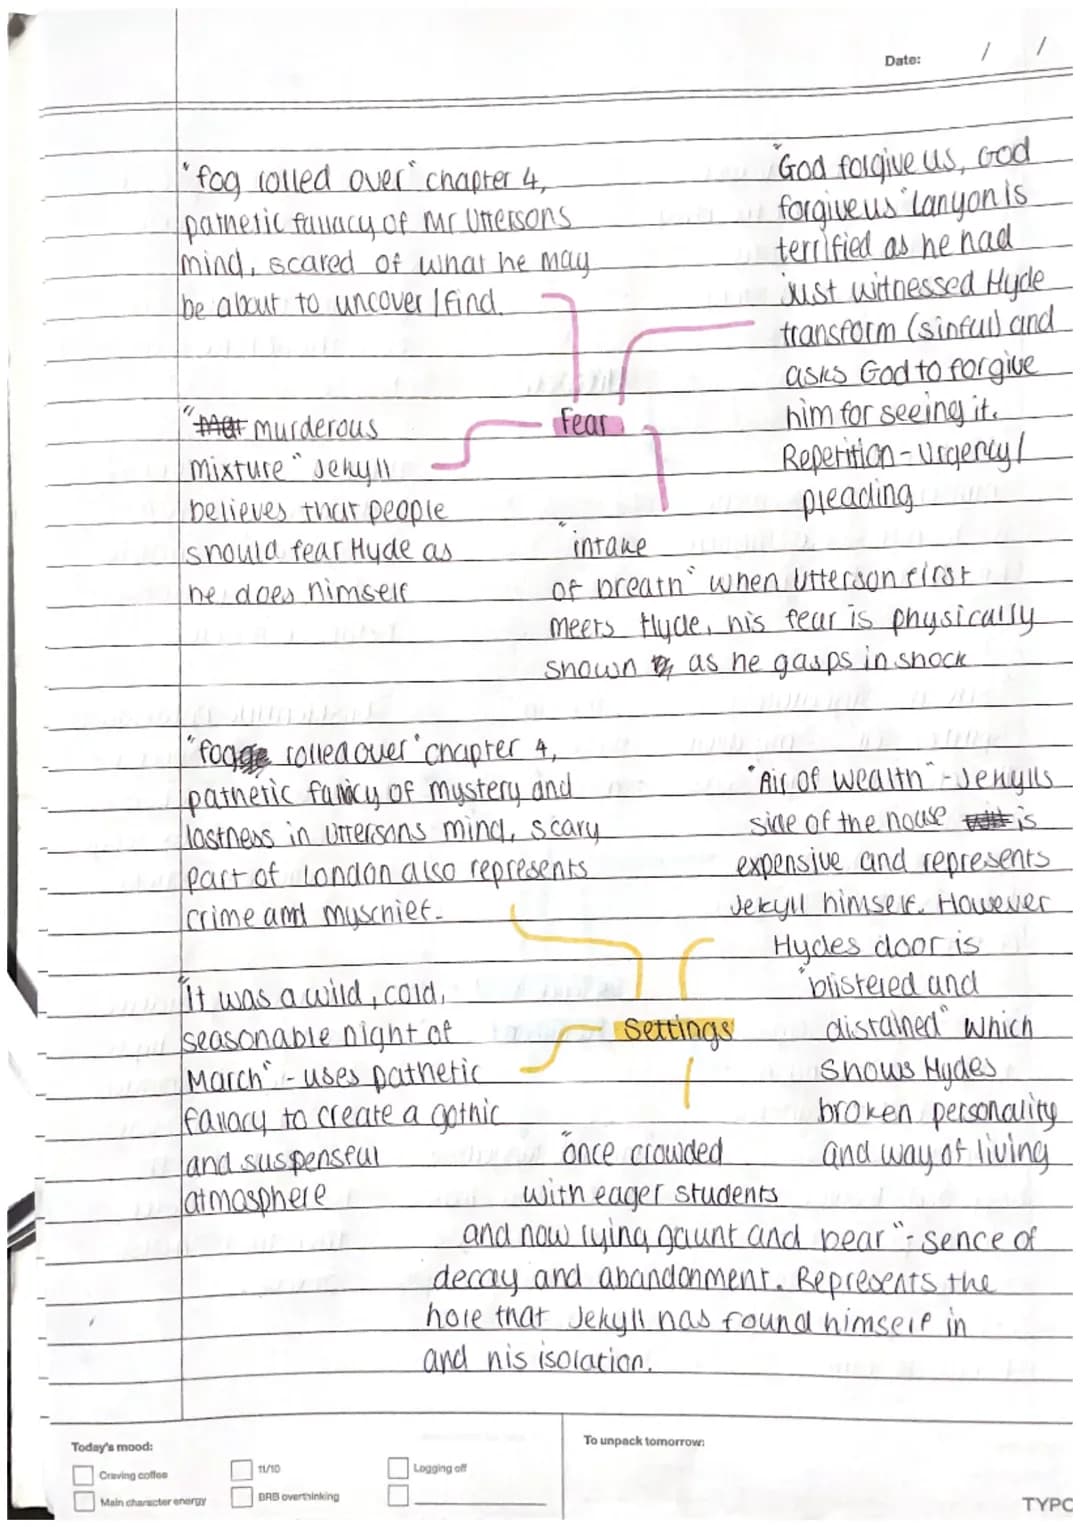 Date: / /
"fog rolled over" chapter 4,
pathetic fallacy of Mr Uttersons
mind, scared of what he may
be about to uncover / find.
"God forgive us, God
forgive us" lanyon is
terrified as he had
just witnessed Hyde
transform (sinful) and
asks God to forgive
him for seeing it.
Repetition - Urgency /
pleading
Fear
"murderous
mixture" Jekyll
believes that people
should fear Hyde as
he does himself
"intake
of breath" when Utterson first
meets Hyde, his fear is physically
shown as he gasps in shock
"fog rolled over" chapter 4,
pathetic fallacy of mystery and
lostness in Uttersons mind, scary
part of London also represents
crime and myschief.
"Air of wealth" - Jekylls
side of the house is
expensive and represents
Jekyll himself. However
Hydes door is
"blistered and
distained" which
shows Hydes
broken personality
and way of living
Settings
"It was a wild, cold,
seasonable night of
March" - uses pathetic
fallacy to create a gothic
and suspensful
atmosphere
"once crowded
with eager students
and now lying gaunt and bear" - sence of
decay and abandonment. Represents the
hole that Jekyll has found himself in
and his isolation.
Today's mood:
Craving coffee
11/10
Logging off
Main character energy
BRB overthinking
To unpack tomorrow:
TYPO